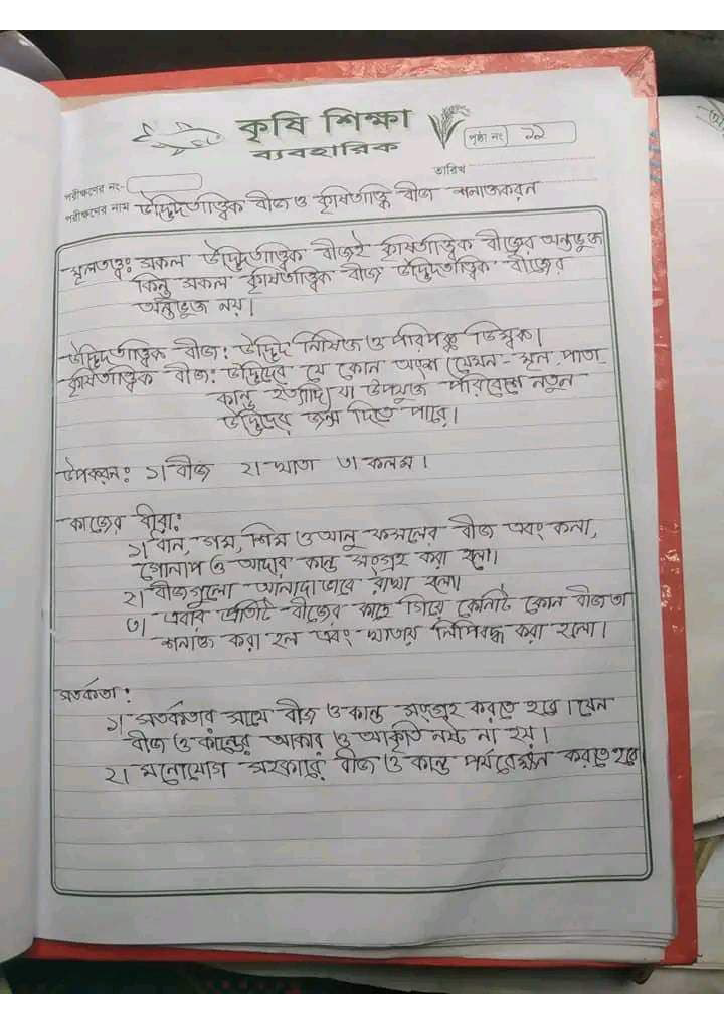 কৃষি শিক্ষা
ব্যবহারিক
পৃষ্ঠা নং ১১
তারিখ
পরীক্ষণের নং-
পরীক্ষণের নাম উদ্ভিদতাত্ত্বিক বীজ ও কৃষিতাত্ত্বিক বীজ শনাক্তকরন
মূলতত্ত্ব: সকল উদ্ভিদতাত্ত্বিক বীজই কৃষিতাত্ত্বিক বীজের অন্তর্ভুক্ত
কিন্তু সকল কৃষিতাত্ত্বিক বীজ উদ্ভিদতাত্ত্বিক বীজের
অন্তর্ভুক্ত নয়।
উদ্ভিদতাত্ত্বিক বীজ: উদ্ভিদ নিষিক্ত ও পরিপক্ক ডিম্বক।
কৃষিতাত্ত্বিক বীজ: উদ্ভিদের যে কোন অংশ (যেমন- মূল, পাতা,
কান্ড ইত্যাদি) যা উপযুক্ত পরিবেশে নতুন
উদ্ভিদের জন্ম দিতে পারে।
উপকরন: ১। বীজ ২। খাতা ৩। কলম।
কাজের ধারা:
১। ধান, গম, শিম ও আলু ফসলের বীজ এবং কলা,
গোলাপ ও আদার কান্ড সংগ্রহ করা হলো।
২। বীজগুলো আলাদাভাবে রাখা হলো।
৩। এবার প্রতিটি বীজের কাছে গিয়ে কোনটি কোন বীজ তা
শনাক্ত করা হল এবং খাতায় লিপিবদ্ধ করা হলো।
সতর্কতা:
১। সতর্কতার সাথে বীজ ও কান্ড সংগ্রহ করতে হবে। যেন
বীজ ও কান্ডের আকার ও আকৃতি নষ্ট না হয়।
২। মনোযোগ সহকারে বীজ ও কান্ড পর্যবেক্ষন করতে হবে